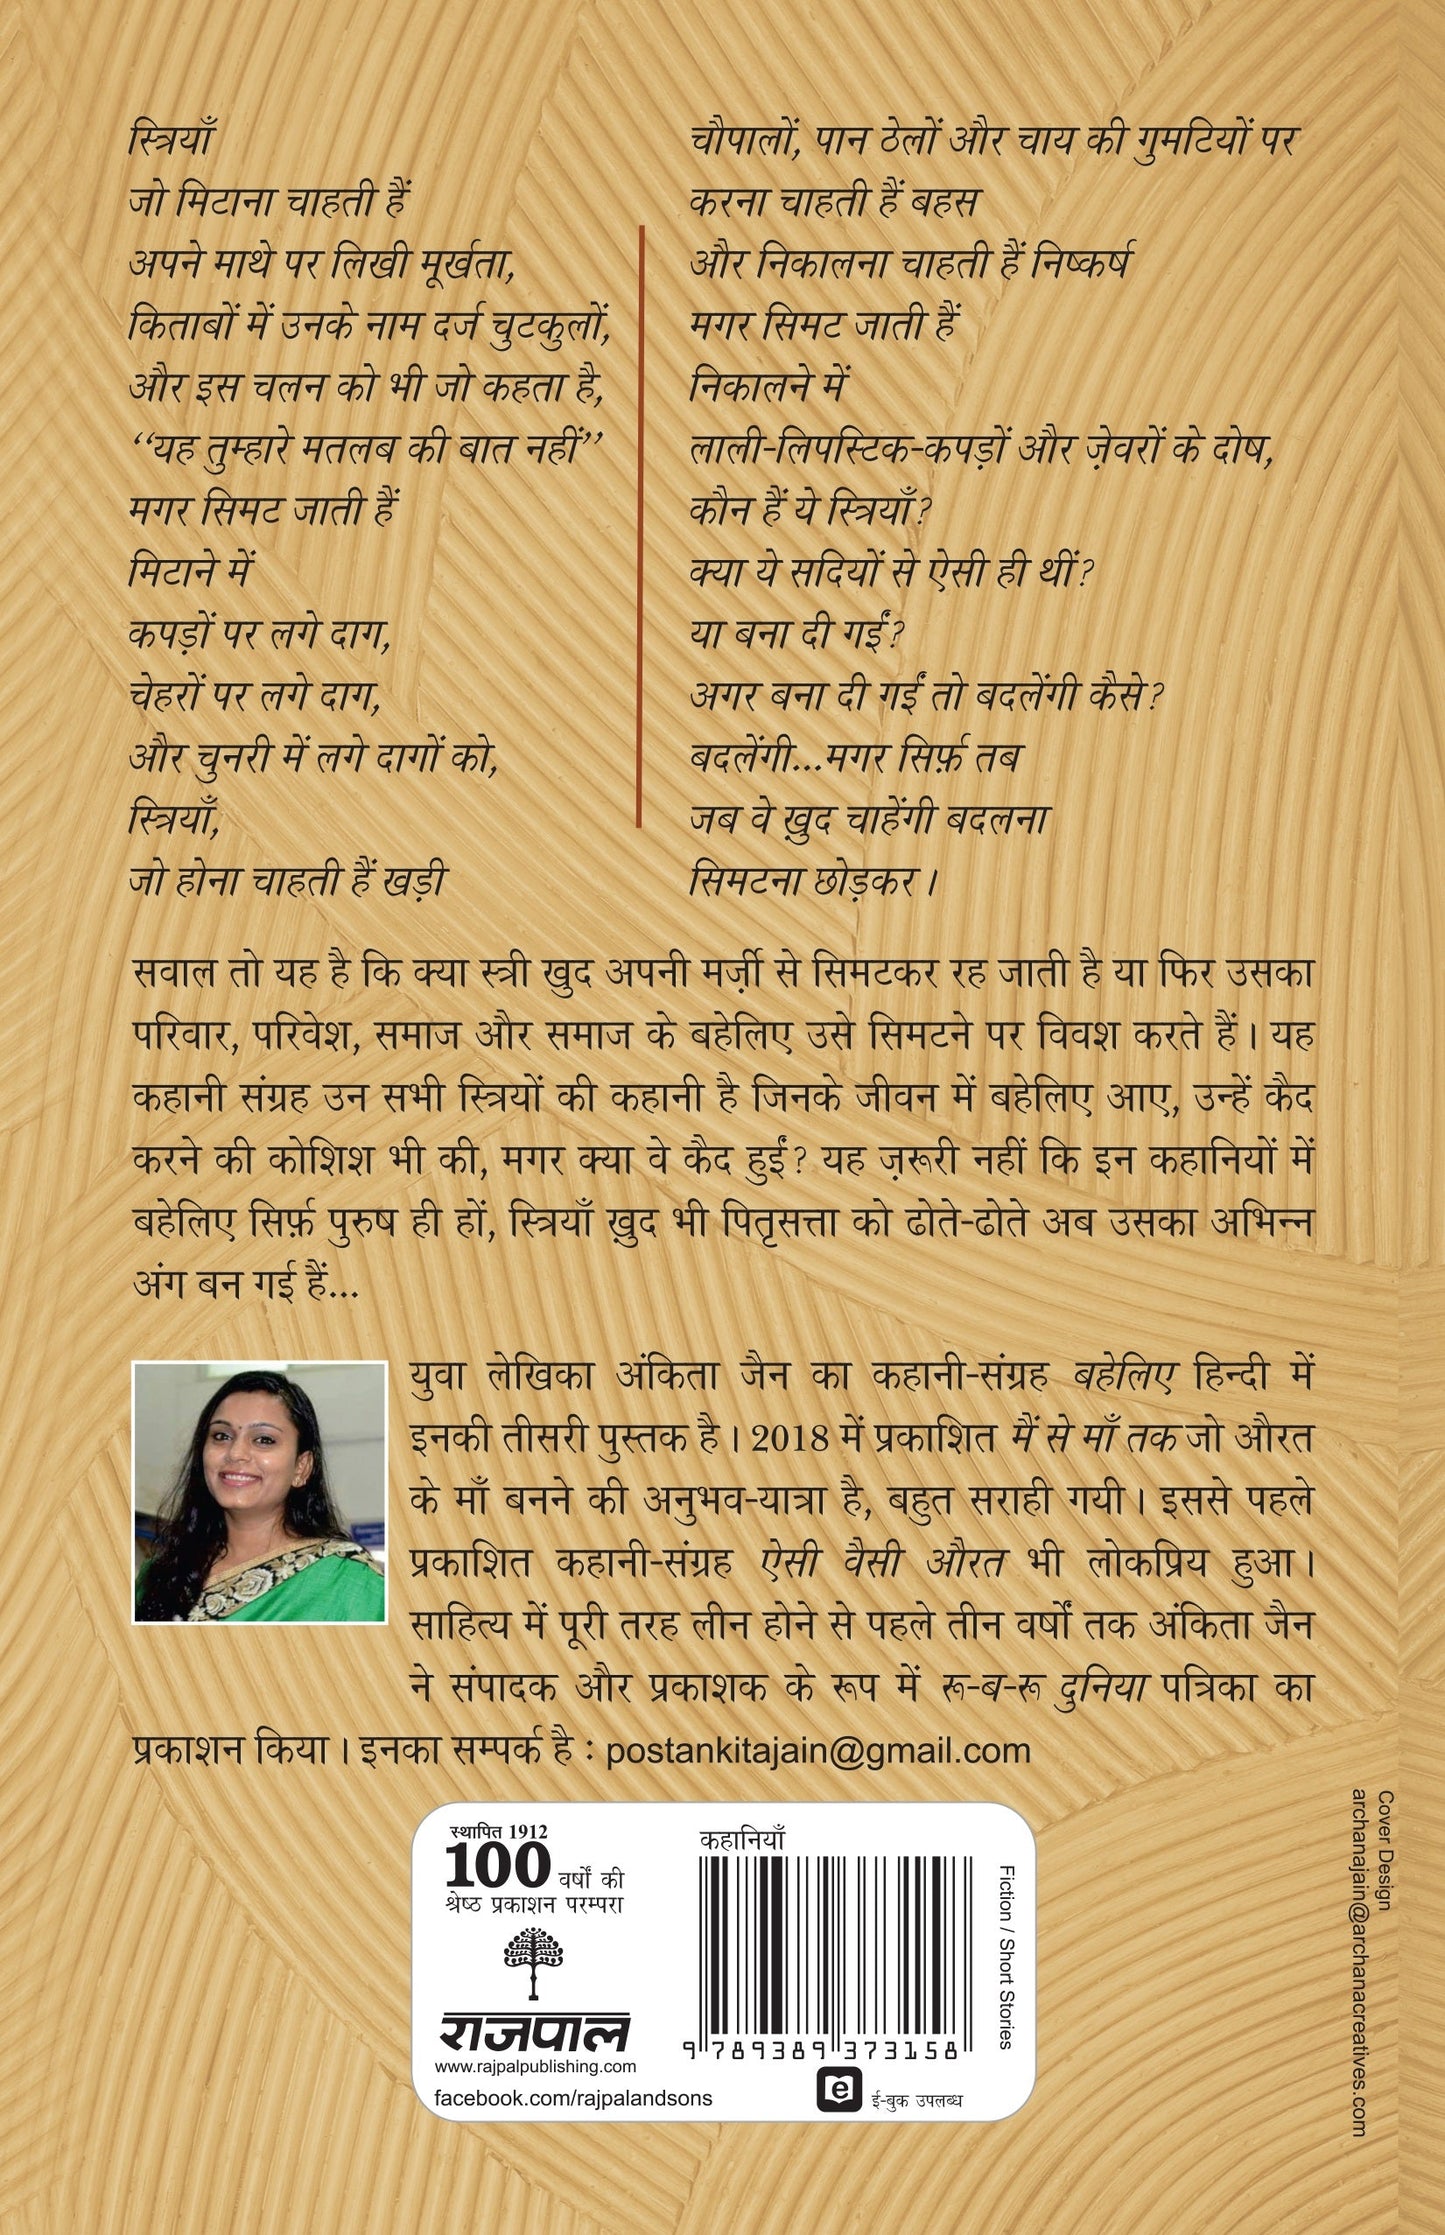 स्त्रियाँ
जो मिटाना चाहती हैं
अपने माथे पर लिखी मूर्खता,
किताबों में उनके नाम दर्ज चुटकुलों,
और इस चलन को भी जो कहता है,
“यह तुम्हारे मतलब की बात नहीं”
मगर सिमट जाती हैं
मिटाने में
कपड़ों पर लगे दाग,
चेहरों पर लगे दाग,
और चुनरी में लगे दागों को,
स्त्रियाँ,
जो होना चाहती हैं खड़ी
चौपालों, पान ठेलों और चाय की गुमटियों पर
करना चाहती हैं बहस
और निकालना चाहती हैं निष्कर्ष
मगर सिमट जाती हैं
निकालने में
लाली-लिपस्टिक-कपड़ों और ज़ेवरों के दोष,
कौन हैं ये स्त्रियाँ?
क्या ये सदियों से ऐसी ही थीं?
या बना दी गईं?
अगर बना दी गईं तो बदलेंगी कैसे?
बदलेंगी...मगर सिर्फ़ तब
जब वे ख़ुद चाहेंगी बदलना
सिमटना छोड़कर।
सवाल तो यह है कि क्या स्त्री खुद अपनी मर्ज़ी से सिमटकर रह जाती है या फिर उसका
परिवार, परिवेश, समाज और समाज के बहेलिए उसे सिमटने पर विवश करते हैं। यह
कहानी संग्रह उन सभी स्त्रियों की कहानी है जिनके जीवन में बहेलिए आए, उन्हें कैद
करने की कोशिश भी की, मगर क्या वे कैद हुईं? यह ज़रूरी नहीं कि इन कहानियों में
बहेलिए सिर्फ़ पुरुष ही हों, स्त्रियाँ ख़ुद भी पितृसत्ता को ढोते-ढोते अब उसका अभिन्न
अंग बन गई हैं...
युवा लेखिका अंकिता जैन का कहानी-संग्रह बहेलिए हिन्दी में
इनकी तीसरी पुस्तक है। 2018 में प्रकाशित मैं से माँ तक जो औरत
के माँ बनने की अनुभव-यात्रा है, बहुत सराही गयी। इससे पहले
प्रकाशित कहानी-संग्रह ऐसी वैसी औरत भी लोकप्रिय हुआ।
साहित्य में पूरी तरह लीन होने से पहले तीन वर्षों तक अंकिता जैन
ने संपादक और प्रकाशक के रूप में रू-ब-रू दुनिया पत्रिका का
प्रकाशन किया। इनका सम्पर्क है : postankitajain@gmail.com
स्थापित 1912
100 वर्षों की
श्रेष्ठ प्रकाशन परम्परा
राजपाल
www.rajpalpublishing.com
facebook.com/rajpalandsons
कहानियाँ
9 789389 373158
e ई-बुक उपलब्ध
Fiction / Short Stories
Cover Design
archanajain@archanacreatives.com